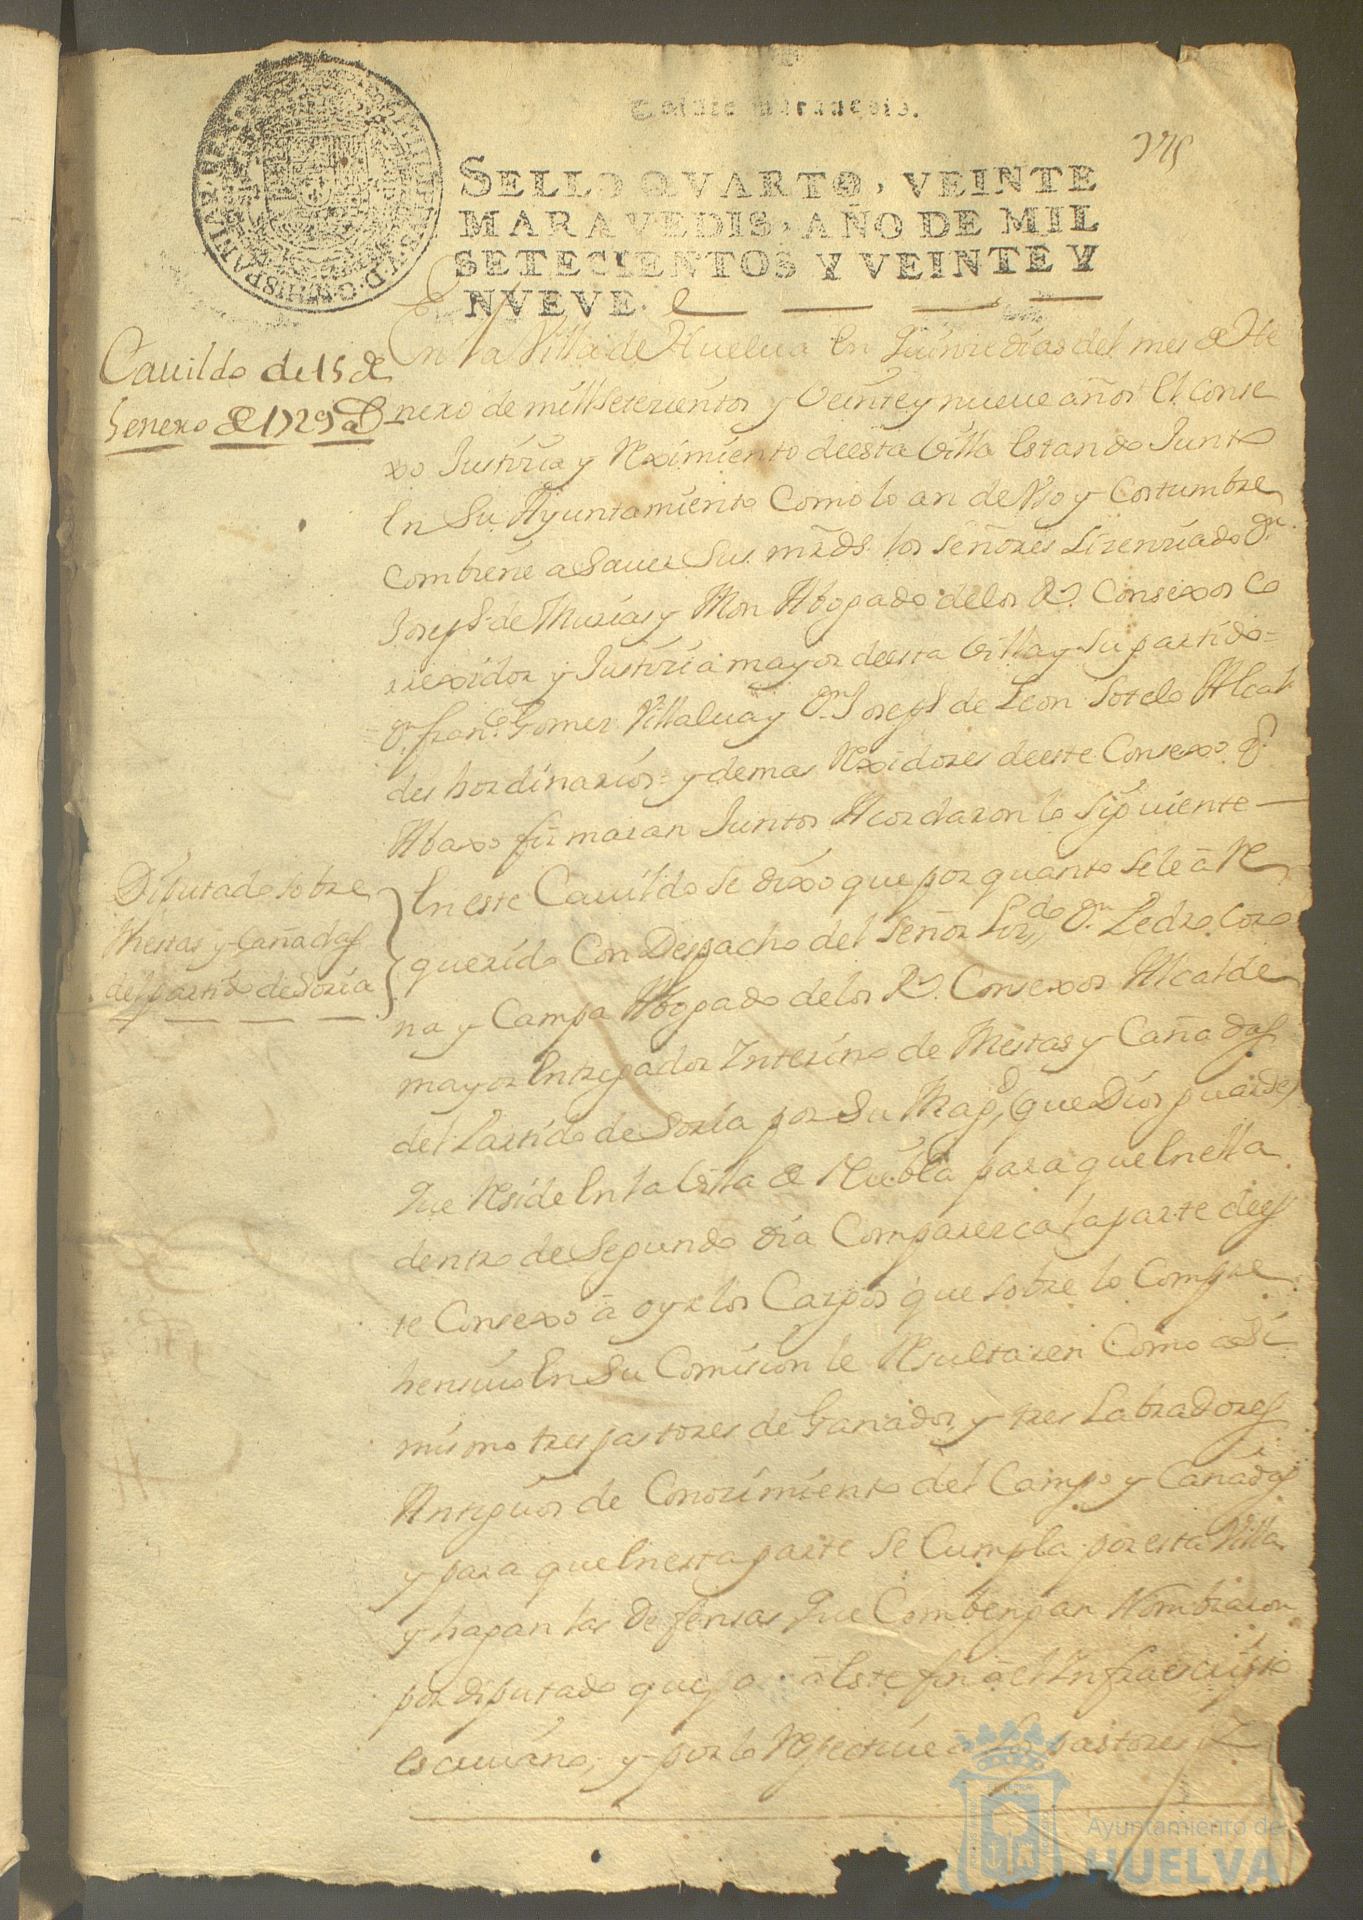 Veinte marauedis.
SELLO QVARTO, VEINTE
MARAVEDIS, AÑO DE MIL
SETECIENTOS Y VEINTE Y
NVEVE.
Cauildo de 15 de
henero de 1729 as
En la Villa de Huelua En Quinze dias del mes de He
nero de mill setezientos y Veinte y nueve años El Conse
xo Justizia y Reximiento deesta Villa Estando Junto
En Su Ayuntamiento Como lo an de Vso y Costumbre
Combiene a Sauer Sus mrds. los señores Lizenziado Dn.
Joseph de Murias y Mon Abogado delos Rs. Consexos Co
rrexidor y Justizia mayor deesta Villa y Su partido=
Dn. franco. Gomez Villalua y Dn. Joseph de Leon Sotelo Alcal
des hordinarios= y demas Rexidores deeste Consexo q.
Abaxo firmaran Juntos Acordaron lo Siguiente
Diputado sobre
Mestas y Cañadas
del partido de Soria
En este Cauildo Se dixo que por quanto Se le á Re
querido Con Despacho del Señor Lizdo. Dn. Pedro Coro
na y Campa Abogado delos Rs. Consexos Alcalde
mayor Entregador Interino de Mestas y Cañadas
del Partido de Soria por Su Magd. (que Dios guarde)
que Reside En la Villa de Niebla para que En ella
dentro de Segundo dia Comparezca la parte dees
te Consexo á oyr los Cargos que Sobre lo Compre
hensiuo En Su Comision le Resultaren Como asi
mismo tres pastores de Ganados y tres Labradores
Antiguos de Conozimiento del Campo y Cañadas
y para que En esta parte Se Cumpla por esta Villa
y hagan las Defensas que Combengan Nombraron
por diputado que pa á Este fin á el Infraescripto
escriuano, y por lo Respectiue á los pastores
Ayuntamiento de
HUELVA